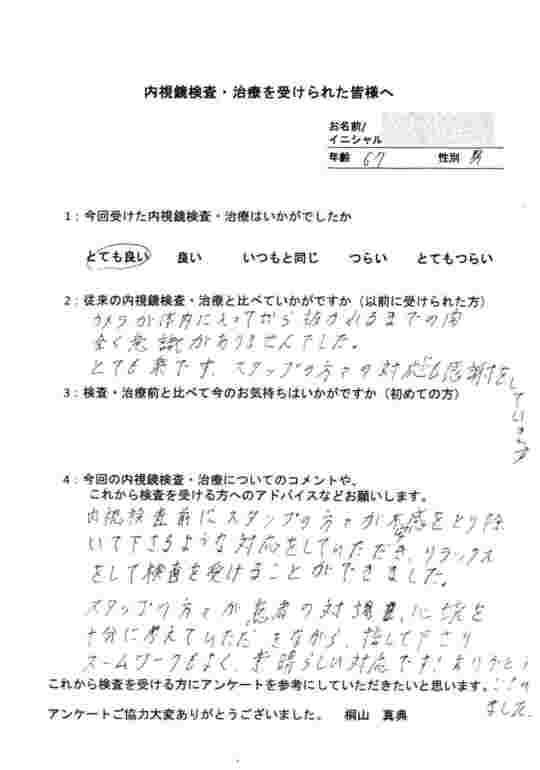 内視鏡検査・治療を受けられた皆様へ
お名前/
イニシャル
年齢 67 性別 男
1：今回受けた内視鏡検査・治療はいかがでしたか
とても良い 良い いつもと同じ つらい とてもつらい
2：従来の内視鏡検査・治療と比べていかがですか（以前に受けられた方）
カメラが体内に入ってから抜かれるまでの間
全く意識がありませんでした。
とても楽です、スタッフの方々の対応も感謝をしています
3：検査・治療前と比べて今のお気持ちはいかがですか（初めての方）
4：今回の内視鏡検査・治療についてのコメントや、
これから検査を受ける方へのアドバイスなどお願いします。
内視検査前にスタッフの方々が不安感をとり除
いて下さるような対応をしていただき、リラックス
をして検査を受けることができました。
スタッフの方々が、患者の対場、心境を
十分に考えていただきながら、接して下さり
チームワークもよく、素晴らしい対応です！ありがとう
ございました。
これから検査を受ける方にアンケートを参考にしていただきたいと思います。
アンケートご協力大変ありがとうございました。 桐山 真典